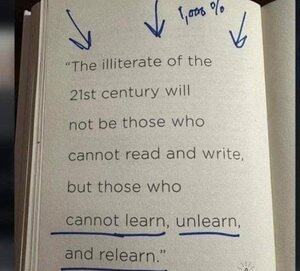 1,000 %
"The illiterate of the
21st century will
not be those who
cannot read and write,
but those who
cannot learn, unlearn,
and relearn."